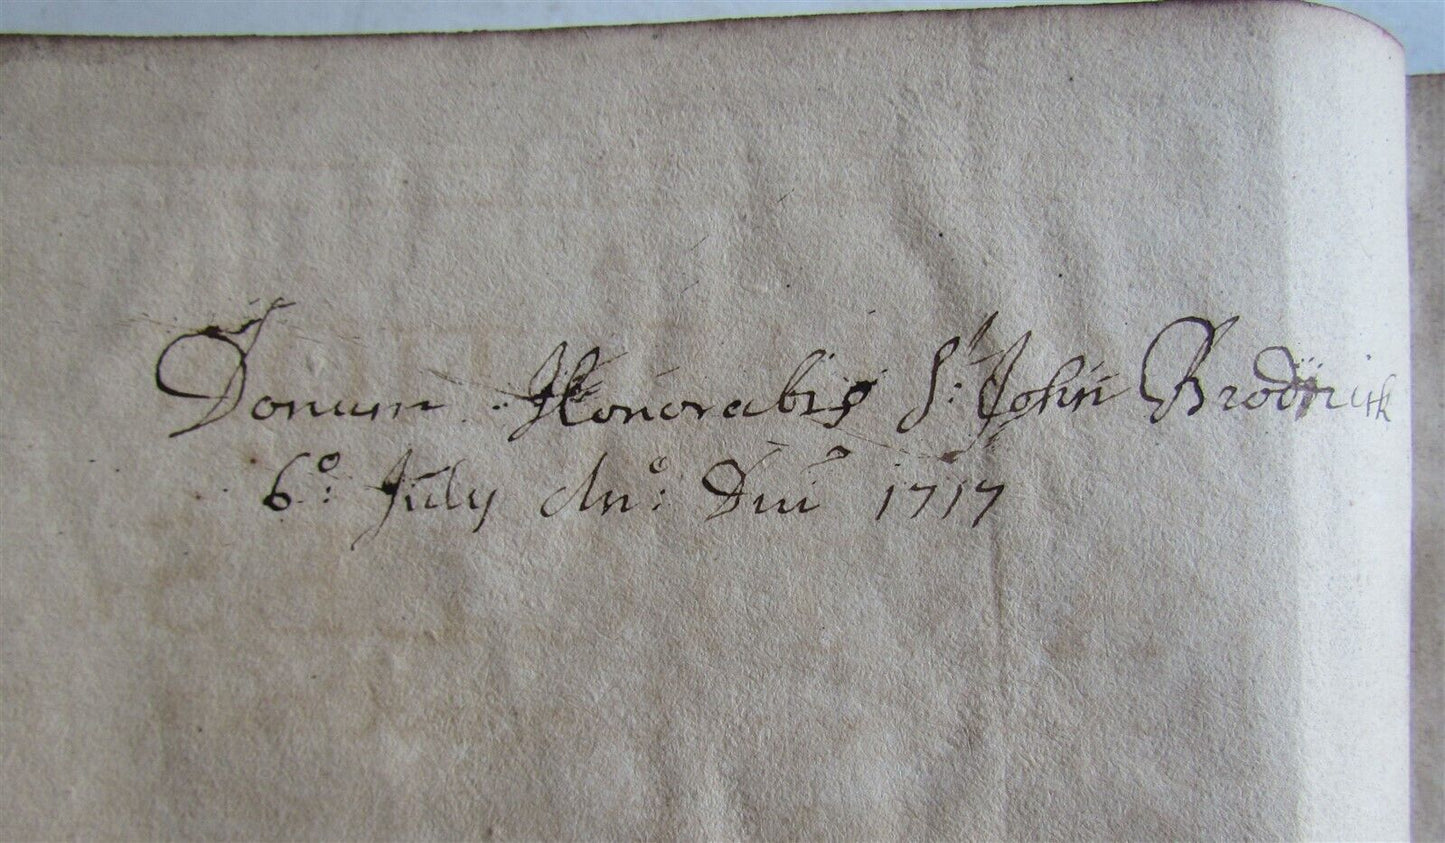 Donum Honorabis St: John Brodrick
6o: July Ano: Dni 1717